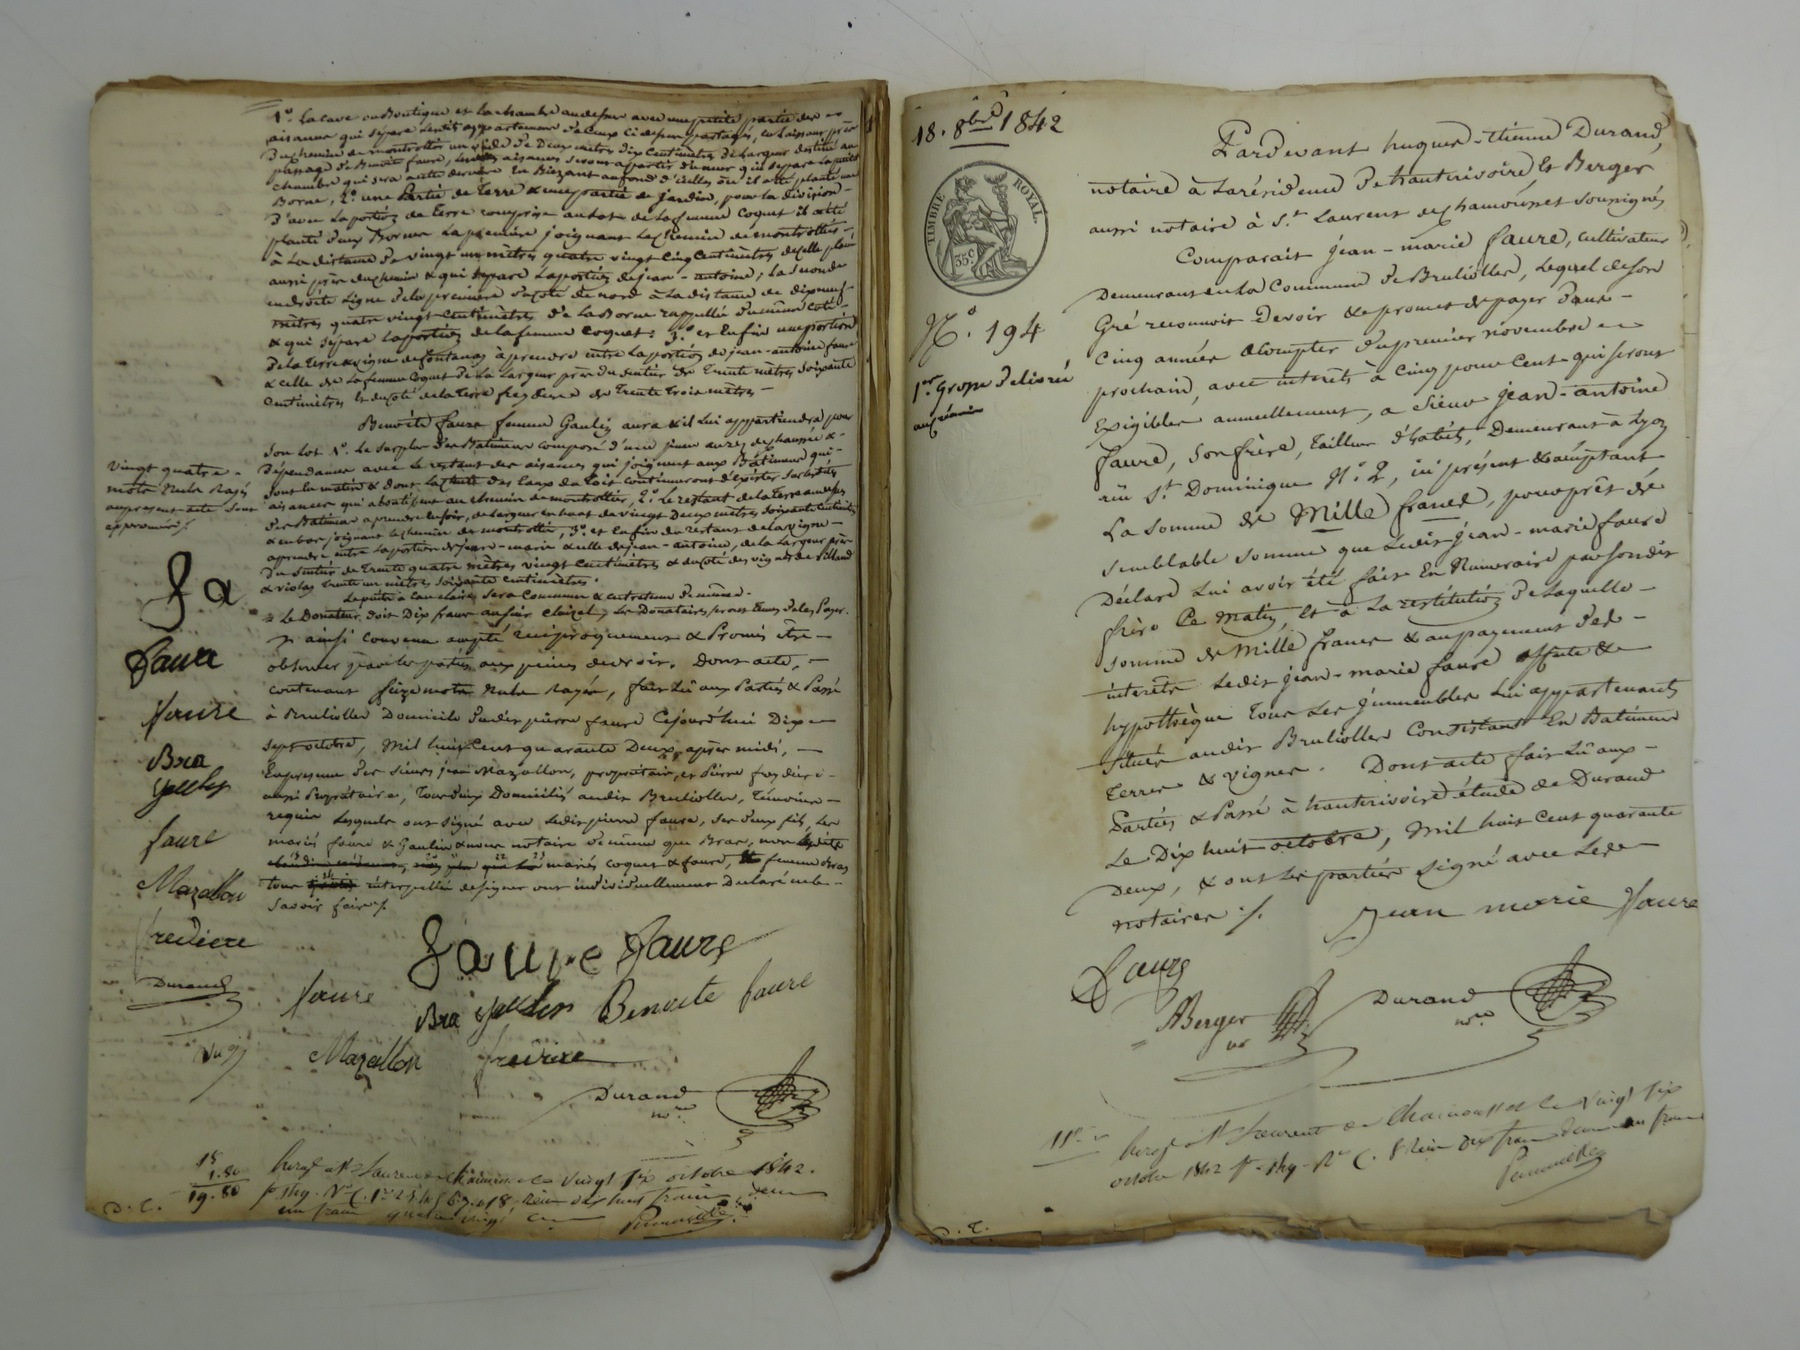 1°. la cave ou Boutique et la chambre au dessus avec une petite partie des
aisances qui sépare
du chemin de montrottier un vide de Deux mètres dix centimètres de largeur destiné au
passage de Benoite faure, aisances
chambre qui sera En Bizeant au fond d'icelles où il a été planté une
Borne, 2°. une Partie de terre & une partie de jardin, pour la division
d'avec la portion de terre comprise au lot de la femme Coquet il a été
planté deux Bornes la première joignant le chemin de montrottier
à la distance de vingt un mètres quatre vingt cinq centimètres de celle planté
aussi près du chemin & qui sépare la portion de jean-antoine; la seconde
en droite ligne de la première du côté de nord à la distance de dix neuf
mètres quatre vingt centimètres de la Borne rappellée du même côté
& qui sépare la portion de la femme Coquet; 3°. et Enfin une portion
de la terre & vigne de fontanay à prendre entre la portion de jean-antoine faure
& celle de la femme Coquet de la largeur près du sentier de Trente mètres soixante
centimètres & du côté de la terre de Trente trois mètres
Benoite faure femme Gaulin aura & il lui appartiendra pour
son lot 1°. le surplus des Batiments composé d'une
Dépendances avec le restant des aisances qui joignent aux Bâtiments qui
sont la moitié & dont la chute des Eaux du toit continueront d'exister sur les dites
aisances qui aboutissent au chemin de montrottier, 2°. le restant de la terre
des Batiments à prendre de largeur en haut de vingt deux mètres soixante centimètres
& en bas joignant le chemin de montrottier, 3°. et Enfin du restant de la vigne
à prendre entre la portion de jean-marie & celle de jean-antoine, de la largeur près
du sentier de Trente quatre mètres vingt centimètres & du côté des vignes de Villand
& violay trente un mètres soixante centimètres.
sera Commune & entretenu de même.
Le Donateur doit Dix francs au sieur Cloizel, Les Donataires seront tenus de les Payer.
ainsi convenu accepté réciproquement & Promis être
observer par les parties aux peines de droit. Dont acte,
contenant seize mots Nuls Rayés, fait Lû aux Parties & Passé
à Brulioles Domicile dudit pierre faure Cejourd'hui Dix
sept octobre, Mil huit Cent quarante Deux, après midi,
En présence des sieurs jean Mazallon, propriétaire, et Pierre fredière
aussi Propriétaire, Tous deux Domiciliés audit Brulioles, témoins
requis lesquels ont signé avec ledit pierre faure, ses deux fils, les
mariés faure & Gaulin & nous notaire de même que Bras, non
mariés coquet & faure, femme Bras
tous interpellés de signer ont individuellement Déclaré ne le
savoir faire./.
vingt quatre
mots Nuls Rayés
au présent acte sont
approuvés./.
fa
faure
faure
Bra
faure
Mazallon
fredière
Durand
faure faure
faure
Bra Benoite faure
Mazallon fredière
Durand
nre
18
1.80
19.80
Enregé à St Laurent de Chamousset le vingt six octobre 1842.
D. E.
18. 8bre 1842
TIMBRE ROYAL.
35 c.
N°. 194
1re Grosse délivrée
au créancier
Pardevant hugues-étienne Durand,
notaire à la résidence de hauterivoire, Et Berger
aussi notaire à St. Laurent de chamousset soussignés
Comparait jean-marie faure, cultivateur
Demeurant en la Commune de Brulioles, Lequel de son
Gré reconnoit devoir & promet de payer dans
cinq années à compter du premier novembre
prochain, avec intérêts à cinq pour cent qui seront
Exigibles annuellement, à Sieur jean-antoine
faure, son frère, tailleur d'habits, Demeurant à Lyon
rue St. Dominique N°. 2, ici présent & acceptant
La somme de Mille francs, pour prêt de
semblable somme que Ledit jean-marie faure
Déclare Lui avoir été fait En Numéraire par son dit
frère Ce Matin, Et à La restitution de laquelle
somme de Mille francs & au payement des
intérêts Ledit jean-marie faure affecte &
hypothèque Tous Les immeubles Lui appartenants
situés audit Brulioles Consistant En Batiments
Terres & vignes. Dont acte fait Lû aux
Parties & Passé à hauterivoire étude de Durand
Le Dix huit octobre, Mil huit Cent quarante
Deux, & ont les parties signé avec Les
notaires./.
Jean marie faure
faure
Berger
nre
Durand
nre
Enregé à St Laurent de Chamousset le vingt six
octobre 1842
D. E.